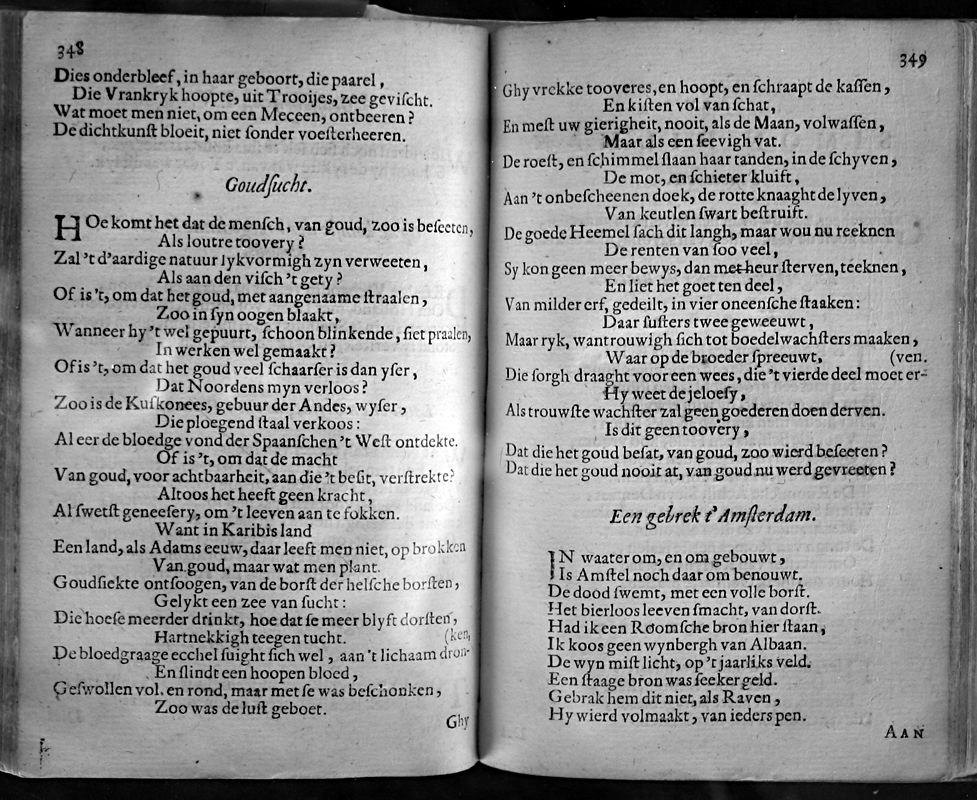 348
Dies onderbleef, in haar geboort, die paarel,
Die Vrankryk hoopte, uit Trooijes, zee gevischt.
Wat moet men niet, om een Meceen, ontbeeren?
De dichtkunſt bloeit, niet ſonder voeſterheeren.
Goudſucht.
HOe komt het dat de menſch, van goud, zoo is beſeeten,
Als loutre toovery?
Zal 't d'aardige natuur lykvormigh zyn verweeten,
Als aan den viſch 't gety?
Of is 't, om dat het goud, met aangenaame ſtraalen,
Zoo in ſyn oogen blaakt,
Wanneer hy 't wel gepuurt, ſchoon blinkende, ſiet praalen,
In werken wel gemaakt?
Of is 't, om dat het goud veel ſchaarſer is dan yſer,
Dat Noordens myn verloos?
Zoo is de Kuſkonees, gebuur der Andes, wyſer,
Die ploegend ſtaal verkoos:
Al eer de bloedge vond der Spaanſchen 't Weſt ontdekte.
Of is 't, om dat de macht
Van goud, voor achtbaarheit, aan die 't beſit, verſtrekte?
Altoos het heeft geen kracht,
Al ſwetſt geneeſery, om 't leeven aan te fokken.
Want in Karibis land
Een land, als Adams eeuw, daar leeft men niet, op brokken
Van goud, maar wat men plant.
Goudſiekte ontſoogen, van de borſt der helſche borſten,
Gelykt een zee van ſucht:
Die hoeſe meerder drinkt, hoe dat ſe meer blyft dorſten,
Hartnekkigh teegen tucht. (ken,
De bloedgraage ecchel ſuight ſich wel, aan 't lichaam dron-
En ſlindt een hoopen bloed,
Geſwollen vol. en rond, maar met ſe was beſchonken,
Zoo was de luſt geboet.
Ghy
349
Ghy vrekke tooveres, en hoopt, en ſchraapt de kaſſen,
En kiſten vol van ſchat,
En meſt uw gierigheit, nooit, als de Maan, volwaſſen,
Maar als een ſeevigh vat.
De roeſt, en ſchimmel ſlaan haar tanden, in de ſchyven,
De mot, en ſchieter kluift,
Aan 't onbeſcheenen doek, de rotte knaaght de lyven,
Van keutlen ſwart beſtruift.
De goede Heemel ſach dit langh, maar wou nu reeknen
De renten van ſoo veel,
Sy kon geen meer bewys, dan met heur ſterven, teeknen,
En liet het goet ten deel,
Van milder erf, gedeilt, in vier oneenſche ſtaaken:
Daar ſuſters twee geweeuwt,
Maar ryk, wantrouwigh ſich tot boedelwachſters maaken,
Waar op de broeder ſpreeuwt, (ven.
Die ſorgh draaght voor een wees, die 't vierde deel moet er-
Hy weet de jeloeſy,
Als trouwſte wachſter zal geen goederen doen derven.
Is dit geen toovery,
Dat die het goud beſat, van goud, zoo wierd beſeeten?
Dat die het goud nooit at, van goud nu werd gevreeten?
Een gebrek t'Amſterdam.
IN waater om, en om gebouwt,
Is Amſtel noch daar om benouwt.
De dood ſwemt, met een volle borſt.
Het bierloos leeven ſmacht, van dorſt.
Had ik een Roomſche bron hier ſtaan,
Ik koos geen wynbergh van Albaan.
De wyn miſt licht, op 't jaarliks veld.
Een ſtaage bron was ſeeker geld.
Gebrak hem dit niet, als Raven,
Hy wierd volmaakt, van ieders pen.
AAN